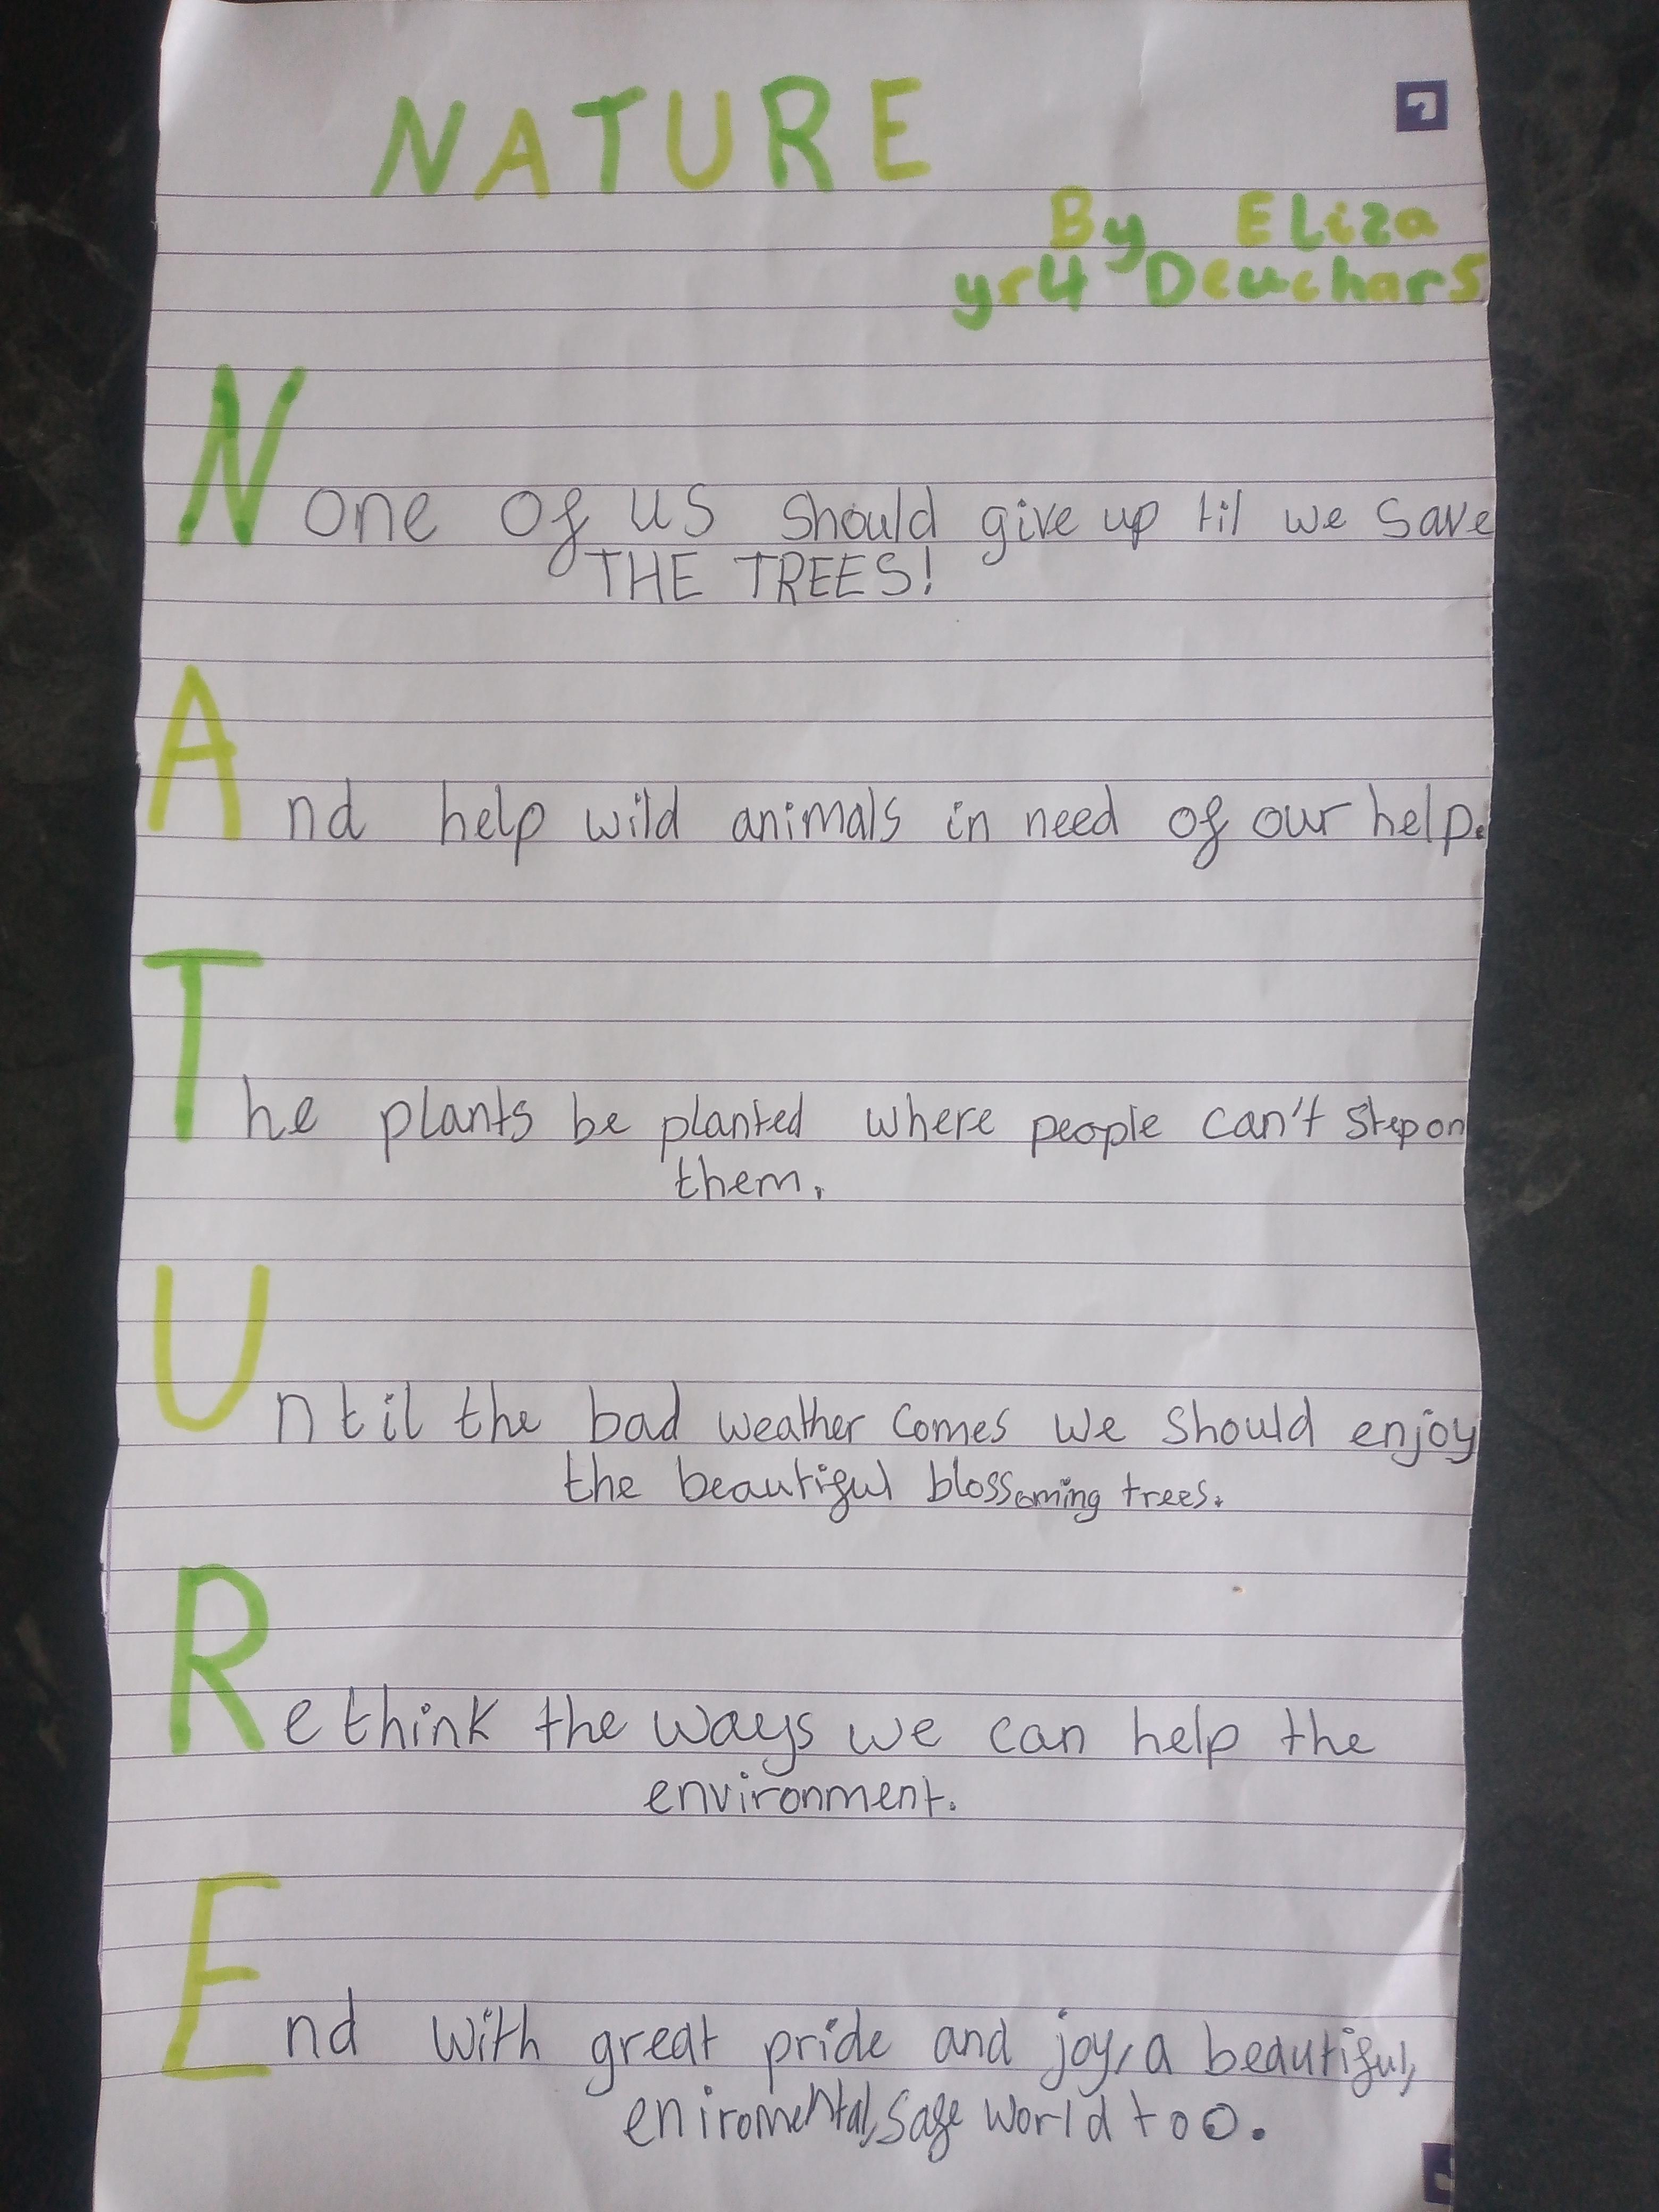 NATURE
By Eliza
yr4 Deuchars
None of us should give up til we save
THE TREES!
And help wild animals in need of our help.
The plants be planted where people can't step on
them.
Until the bad weather comes we should enjoy
the beautiful blossoming trees.
Rethink the ways we can help the
environment.
End with great pride and joy, a beautiful,
eniromental, safe world too.